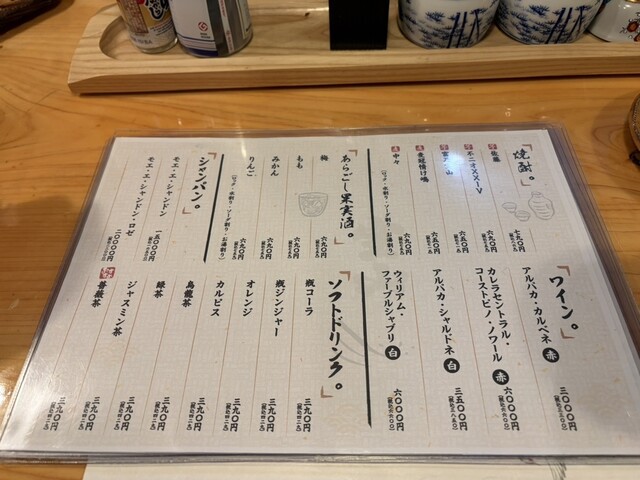 焼酎。
佐藤
七九〇円
不二才
富乃山
赤兎馬
中々
六九〇円
(ロック・水割り・ソーダ割り・お湯割り)
あらごし果実酒。
梅
六九〇円
もも
六九〇円
みかん
六九〇円
りんご
六九〇円
(ロック・水割り・ソーダ割り・お湯割り)
シャンパン。
モエ・エ・シャンドン
一五〇〇〇円
モエ・エ・シャンドン・ロゼ
二〇〇〇〇円
ワイン。
アルパカ・カルベネ 赤
三〇〇〇円
カレラセントラル・
コーストピノ・ノワール 赤
六〇〇〇円
アルパカ・シャルドネ 白
三五〇〇円
ウィリアム・
ファーブルシャブリ 白
六〇〇〇円
ソフトドリンク。
瓶コーラ
三九〇円
瓶ジンジャー
三九〇円
オレンジ
三九〇円
カルピス
三九〇円
烏龍茶
三九〇円
緑茶
三九〇円
ジャスミン茶
三九〇円
薔薇茶
三九〇円